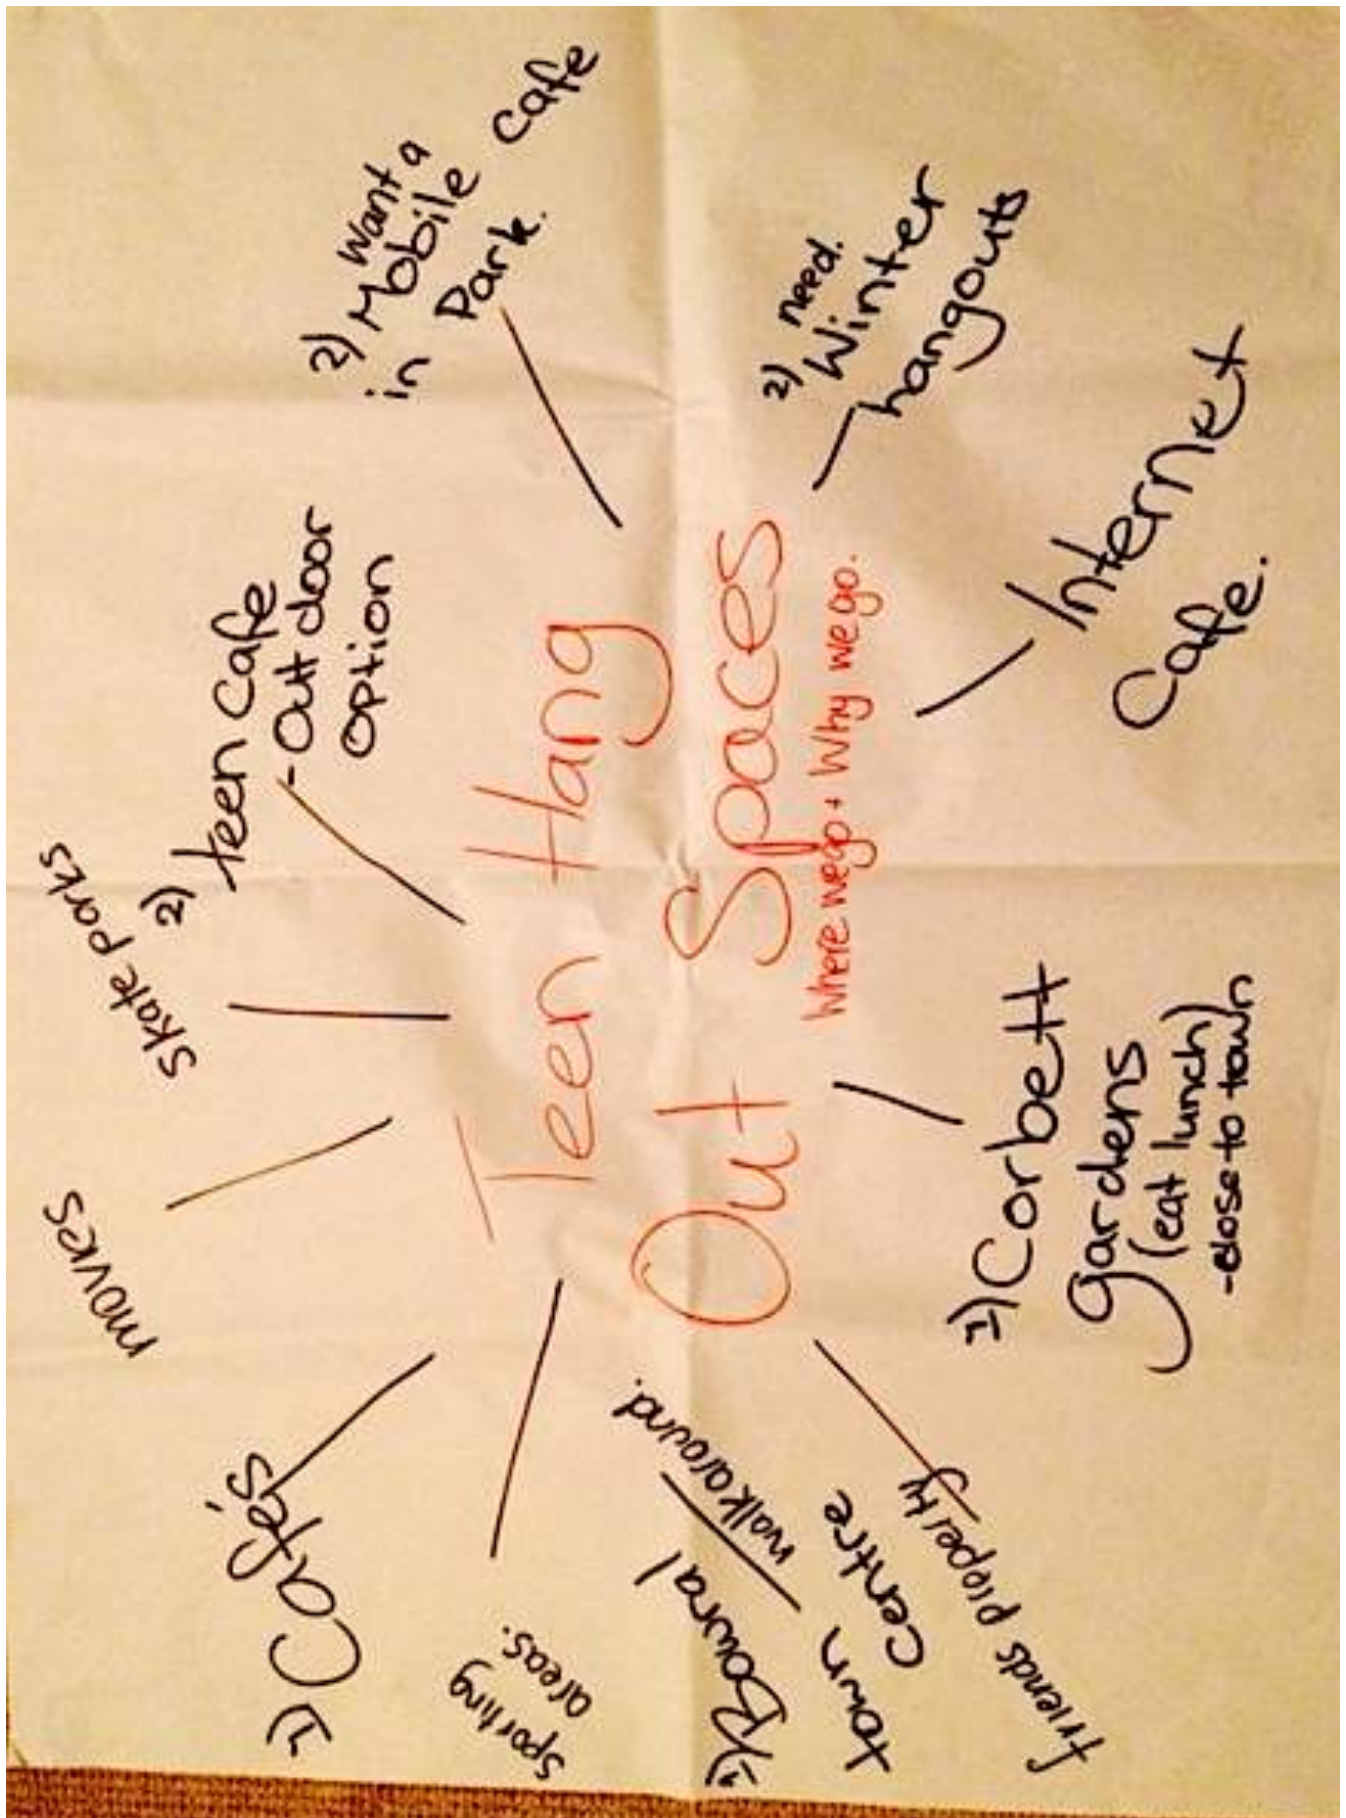 Teen Hang
Out Spaces
Where we go + Why we go.
1) Cafés
movies
skate parks
2) teen cafe
- Out door
option
2) Want a
Mobile cafe
in Park.
2) need.
Winter
hangouts
Internet
Cafe.
1) Corbett
gardens
(eat lunch)
- close to town
friends property
1) Bowral
town
centre
walk around.
sporting
areas.